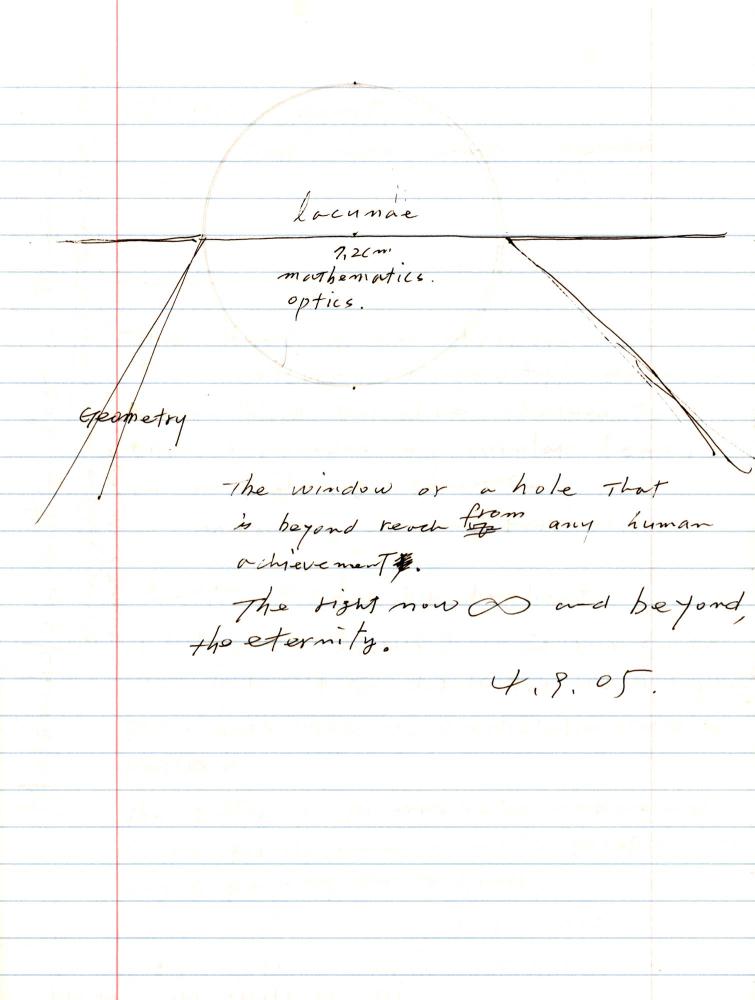 lacunae
7,2cm
mathematics.
optics.
Geometry
The window or a hole That
is beyond reach from any human
achievement.
The right now ∞ and beyond,
the eternity.
4.9.05.